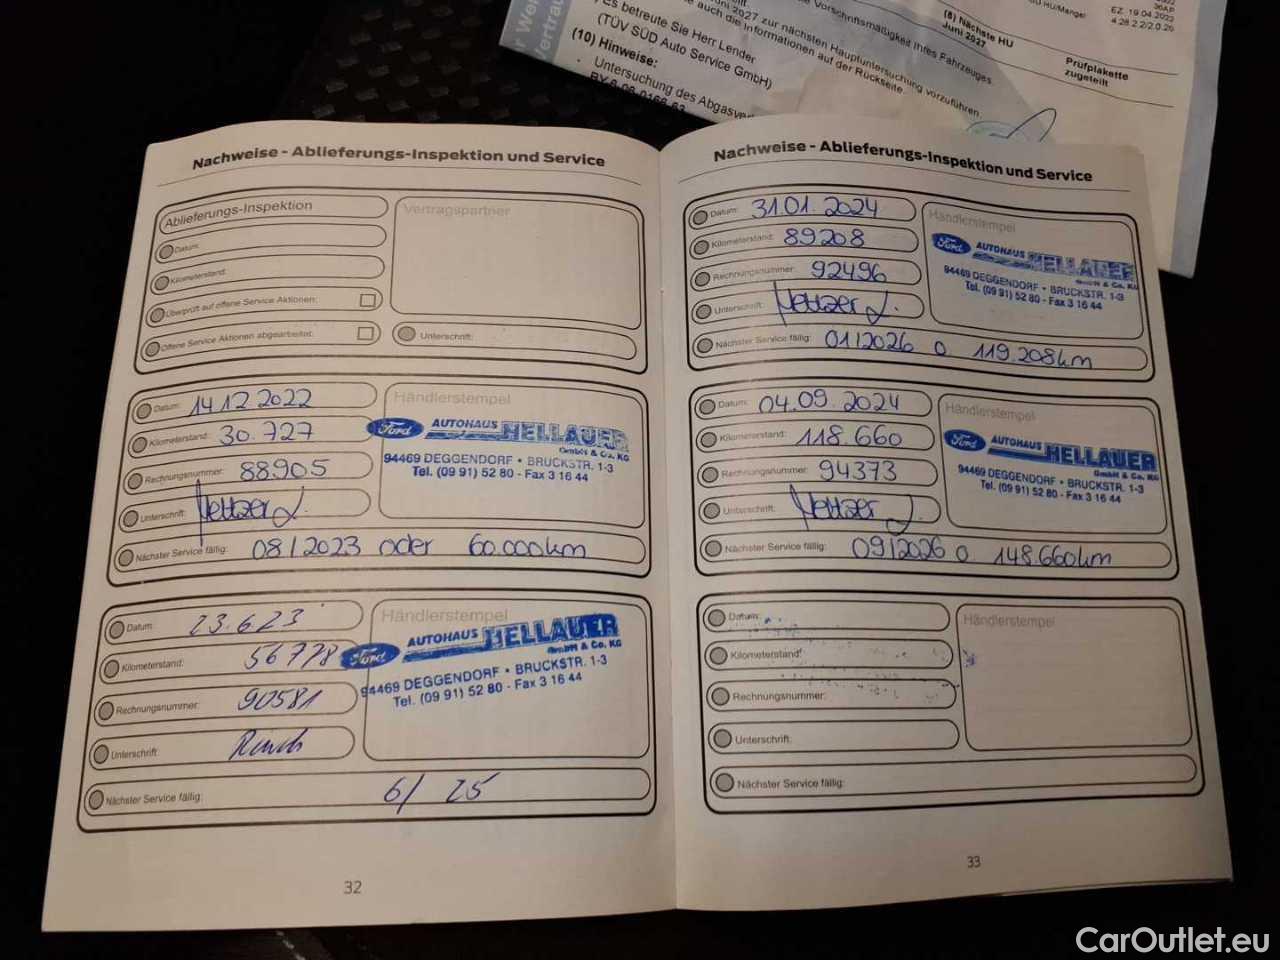 (8) Nächste HU
Juni 2027
EZ. 19.04.2022
4.28.2.2/2.0.26
Prüfplakette
zugeteilt
Vorschriftsmäßigkeit Ihres Fahrzeuges.
Juni 2027 zur nächsten Hauptuntersuchung vorzuführen.
auch die Informationen auf der Rückseite.
Es betreute Sie Herr Lender
(TÜV SÜD Auto Service GmbH)
(10) Hinweise:
Untersuchung des
Nachweise - Ablieferungs-Inspektion und Service
Ablieferungs-Inspektion
Vertragspartner
Datum:
Kilometerstand:
Überprüft auf offene Service Aktionen:
Offene Service Aktionen abgearbeitet:
Unterschrift:
Datum: 14.12.2022
Kilometerstand: 30.727
Rechnungsnummer: 88905
Unterschrift:
Nächster Service fällig: 08/2023 oder 60.000km
Händlerstempel
Ford AUTOHAUS HELLAUER
GmbH & Co. KG
94469 DEGGENDORF • BRUCKSTR. 1-3
Tel. (09 91) 52 80 - Fax 3 16 44
Datum: 23.6.23
Kilometerstand: 56778
Rechnungsnummer: 90581
Unterschrift:
Nächster Service fällig: 6/25
Händlerstempel
Ford AUTOHAUS HELLAUER
GmbH & Co. KG
94469 DEGGENDORF • BRUCKSTR. 1-3
Tel. (09 91) 52 80 - Fax 3 16 44
32
Nachweise - Ablieferungs-Inspektion und Service
Datum: 31.01.2024
Kilometerstand: 89208
Rechnungsnummer: 92496
Unterschrift:
Nächster Service fällig: 01/2026 o 119.208km
Händlerstempel
Ford AUTOHAUS HELLAUER
GmbH & Co. KG
94469 DEGGENDORF • BRUCKSTR. 1-3
Tel. (09 91) 52 80 - Fax 3 16 44
Datum: 04.09.2024
Kilometerstand: 118.660
Rechnungsnummer: 94373
Unterschrift:
Nächster Service fällig: 09/2026 o 148.660km
Händlerstempel
Ford AUTOHAUS HELLAUER
GmbH & Co. KG
94469 DEGGENDORF • BRUCKSTR. 1-3
Tel. (09 91) 52 80 - Fax 3 16 44
Datum:
Kilometerstand:
Rechnungsnummer:
Unterschrift:
Nächster Service fällig:
Händlerstempel
33
CarOutlet.eu